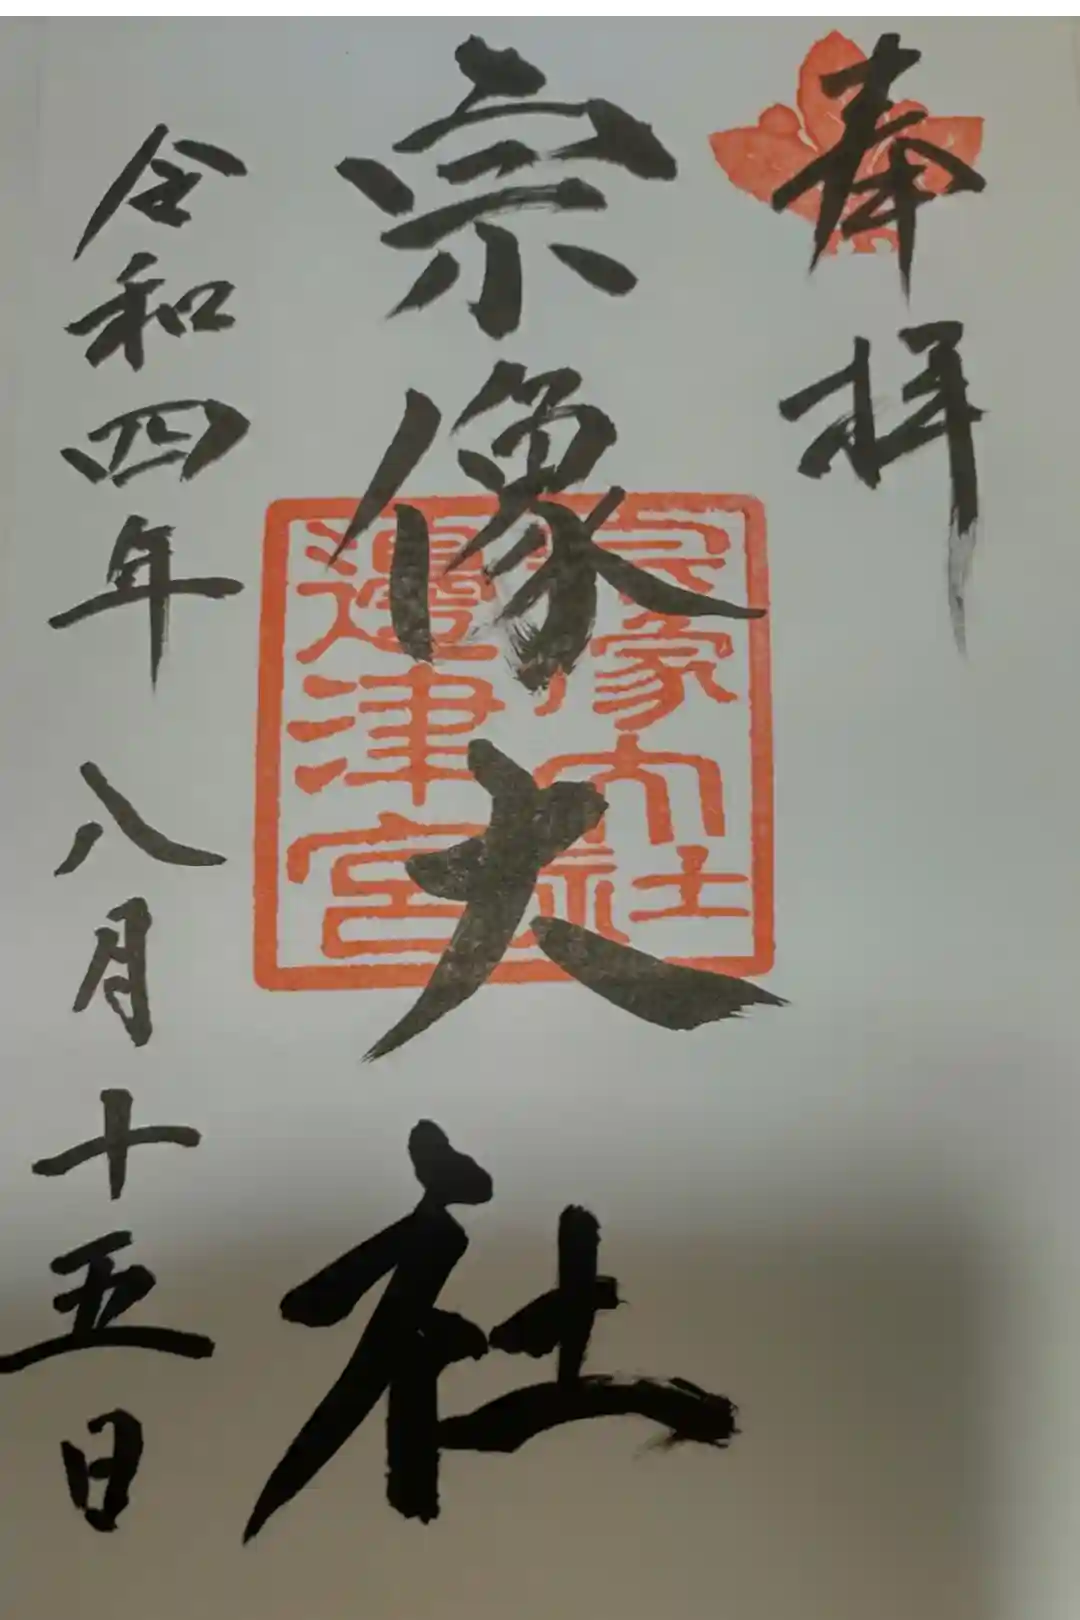 奉拝
宗像大社
宗像大社
邊津宮
令和四年八月十五日